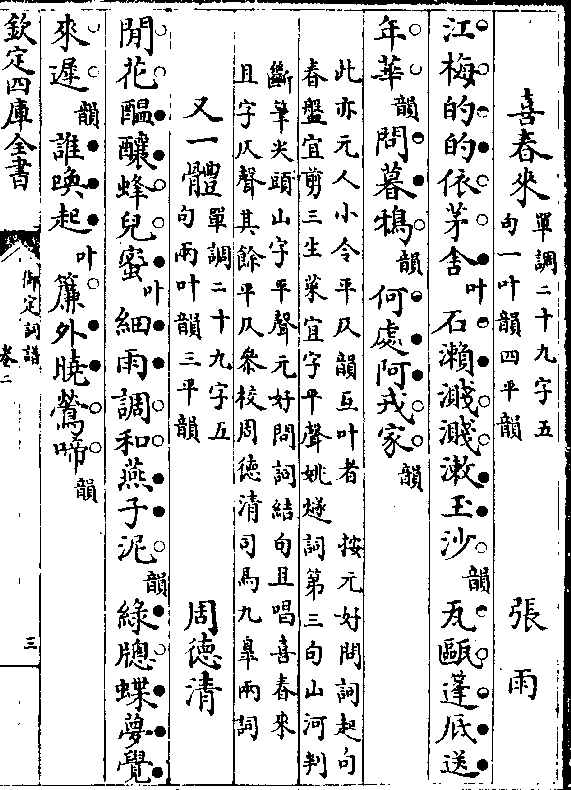 喜春來 單調二十九字五
句一叶韻四平韻 張雨
江梅的的依茅舍叶石瀨濺濺漱玉沙韻瓦甌蓬底送
年華韻問暮鴉韻何處阿戎家韻
此亦元人小令平仄韻互叶者 按元好問詞起句
春盤宜剪三生菜宜字平聲姚燧詞第三句山河判
斷筆尖頭山字平聲元好問詞結句且唱喜春來
且字仄聲其餘平仄參校周德清司馬九臯兩詞
又一體 單調二十九字五
句兩叶韻三平韻 周德清
閒花醞釀蜂兒蜜叶細雨調和燕子泥韻綠牕蝶夢覺
來遲韻誰喚起叶簾外曉鶯啼韻
欽定四庫全書
御定詞譜
卷二
三